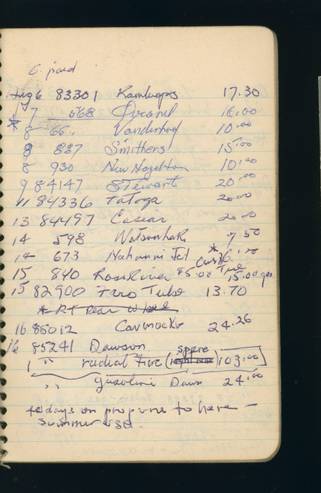 paid
Aug 6 83301 Kamloops 17.30
7 568 16.00
* 8 66 Vanderhoof 10.00
8 837 Smithers 15.00
8 930 New Hazelton 10.00
9 84147 Stewart 20.00
11 84336 Tatoga 20.00
13 84497 Cassiar 20.00
14 598 Watson Lake 7.50
14 673 Nahanni
15 840 Ross River $5.00 Tire 15.00 gas
15 Tube 13.70
* RT Rear
16 85012 Carmacks 24.26
16 85241 Dawson
1 " radial tire (spare) 103.00
" gasoline Daws 24.00
days on propane to here –
summer '80.